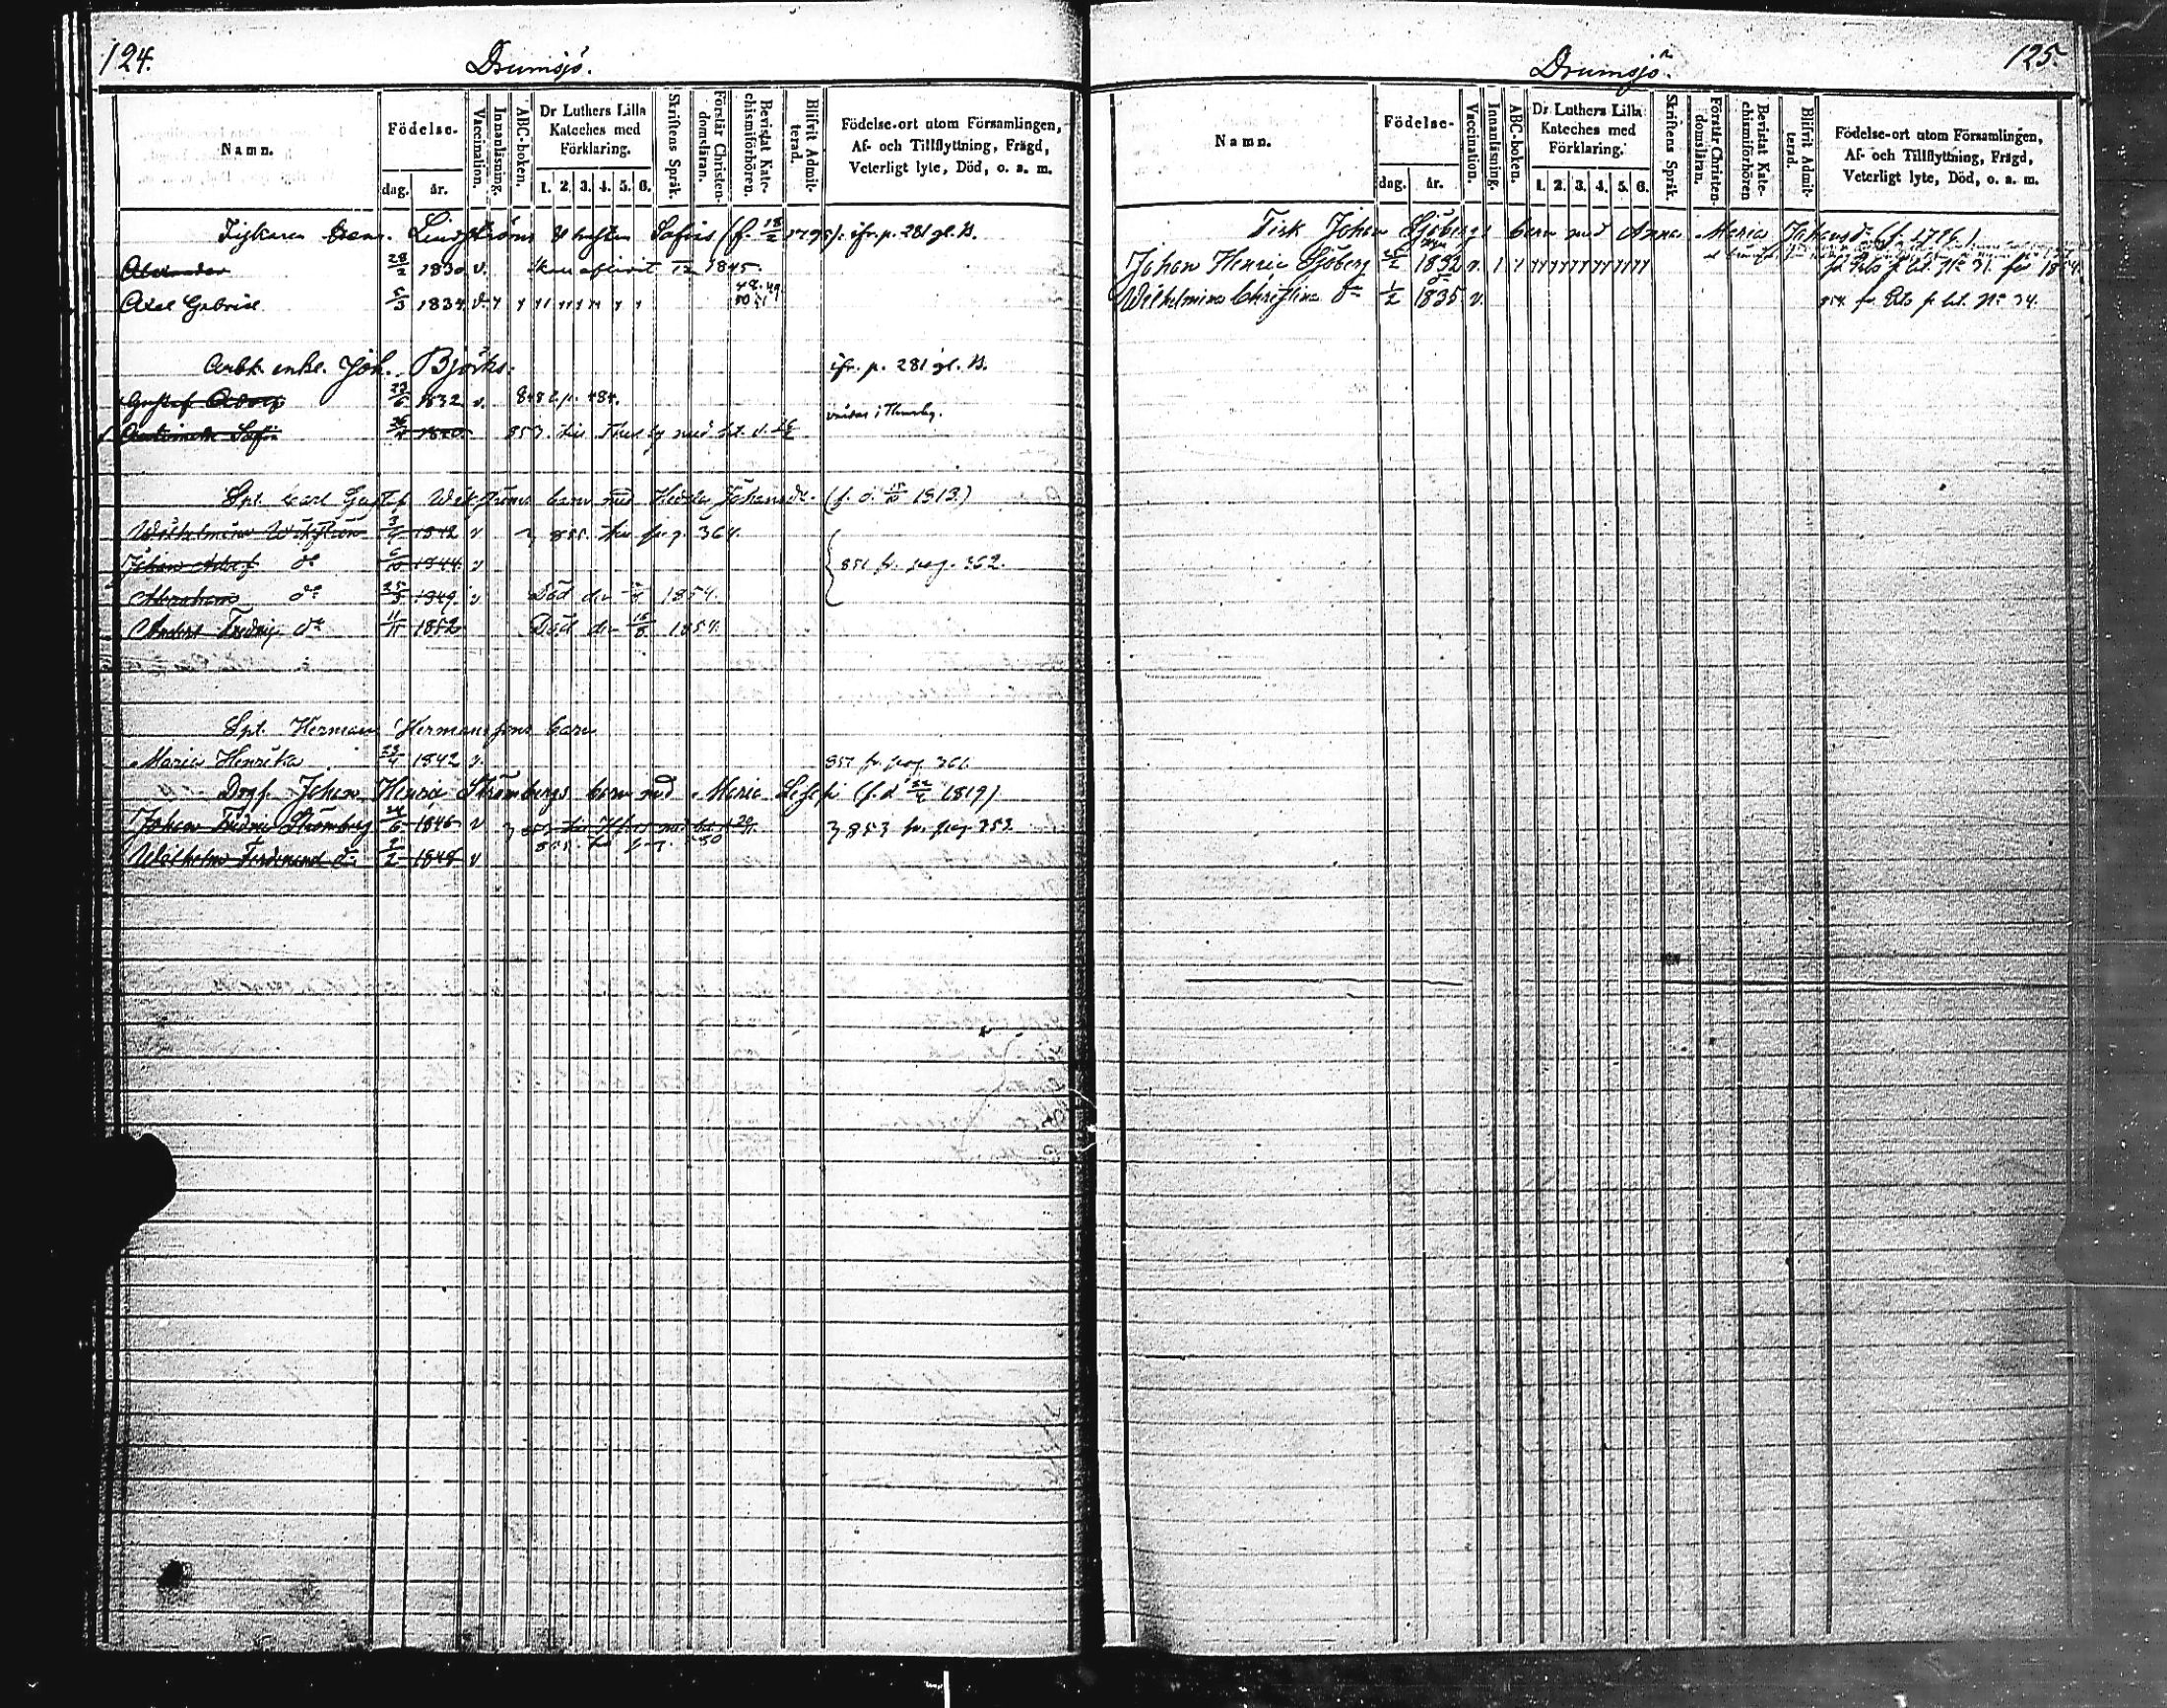 124.
Drumsjö.
Namn.
Födelse-
dag. år.
Vaccination.
Innanläsning.
ABC-boken.
Dr Luthers Lilla
Kateches med
Förklaring.
1. 2. 3. 4. 5. 6.
Skriftens Språk.
Förstår Christen-
domsläran.
Bevistat Kate-
chismiförhören.
Blifvit Admit-
terad.
Födelse-ort utom Församlingen,
Af- och Tillflyttning, Frägd,
Veterligt lyte, Död, o. s. m.
Lindströms Sofias (f. 18/2 1795). ifr. p. 281 gl. B.
Alexander 28/2 1830 v. 1845.
Axel Gabriel 5/3 1834 v. 48. 49
50 51
Arbk. enke. Joh. Björks. ifr. p. 281 gl. B.
Gustaf Adolf 23/6 1832 v. p. 484.
Sofia 1840 853. med
Spl. Carl Gustaf Wikströms barn med Hedda Johansdr. (f. d. 15/10 1813.)
Wilhelmina Wikström 1842 v 855. 364.
Johan Adolf do 6/10 1844 v 851 fr. pag. 362.
Abraham do 25/ 1849 v Död den 1854.
Anders Fredrig do 11/11 1852 Död den 15/8 1854.
Spl. Herman Hermanssons barn
Maria Henrika 23/4 1842 v. 857 fr. pag. 361.
Johan Henric Strömbergs barn med Maria (f. d. 22/2 1819)
Johan Fredric Strömberg 24/6 1846 v 853 fr. pag 353.
Wilhelm Ferdinand do 2/2 1848 v
Drumsjö.
125
Namn.
Födelse-
dag. år.
Vaccination.
Innanläsning.
ABC-boken.
Dr Luthers Lilla
Kateches med
Förklaring.
1. 2. 3. 4. 5. 6.
Skriftens Språk.
Förstår Christen-
domsläran.
Bevistat Kate-
chismiförhören
Blifvit Admit-
terad.
Födelse-ort utom Församlingen,
Af- och Tillflyttning, Frägd,
Veterligt lyte, Död, o. s. m.
Fisk Johan Sjöbergs barn med Anna Maria Johansd. (f. 1786.)
Johan Henric Sjöberg 25/2 1832 v. No 31. för 1854.
Wilhelmina Christina do 1/2 1835 v. 854. fr. No 34.